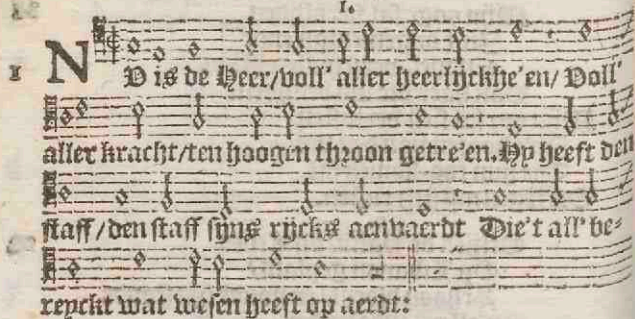 1.
1 NU is de Heer/voll' aller heerlijckhe'en/ Voll'
aller kracht/ten hoogen throon getre'en. Hy heeft den
staff/den staff sijns rijcks aenvaerdt Die't all' be-
reyckt wat wesen heeft op aerdt: